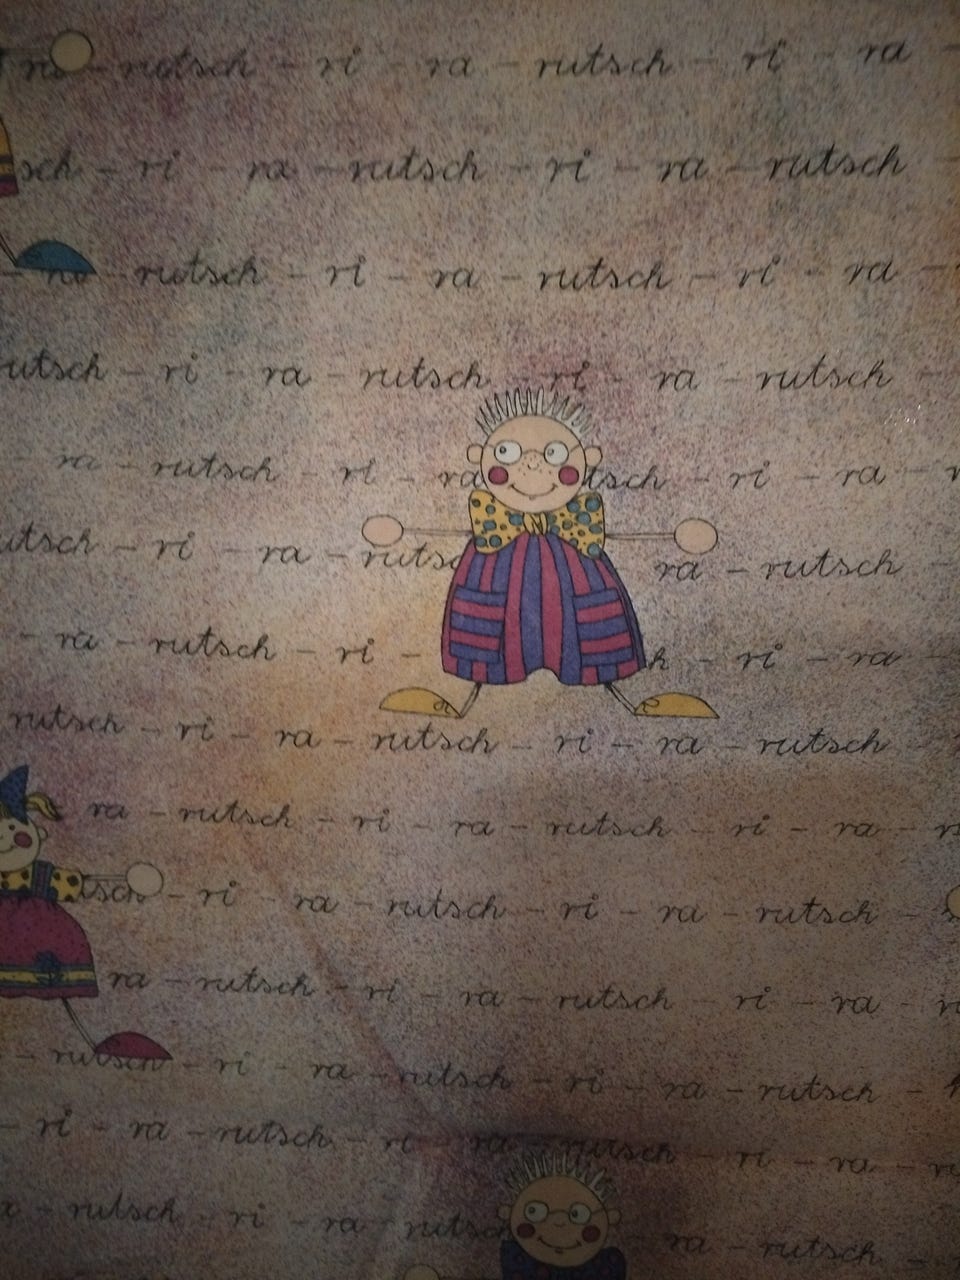 - rutsch - ri - ra - rutsch - ri - ra -
sch - ri - ra - rutsch - ri - ra - rutsch -
- rutsch - ri - ra - rutsch - ri - ra -
rutsch - ri - ra - rutsch - ri - ra - rutsch -
- ra - rutsch - ri - ra tsch - ri - ra -
utsch - ri - ra - rutsc ra - rutsch -
- ra - rutsch - ri - h - ri - ra -
rutsch - ri - ra - rutsch - ri - ra - rutsch -
ra - rutsch - ri - ra - rutsch - ri - ra -
tsch - ri - ra - rutsch - ri - ra - rutsch -
ra - rutsch - ri - ra - rutsch - ri - ra -
- rutsch - ri - ra - rutsch - ri - ra - rutsch -
- ri - ra - rutsch - ri - ra - rutsch - ri - ra -
- rutsch - ri - ra - rutsch - ra - rutsch -